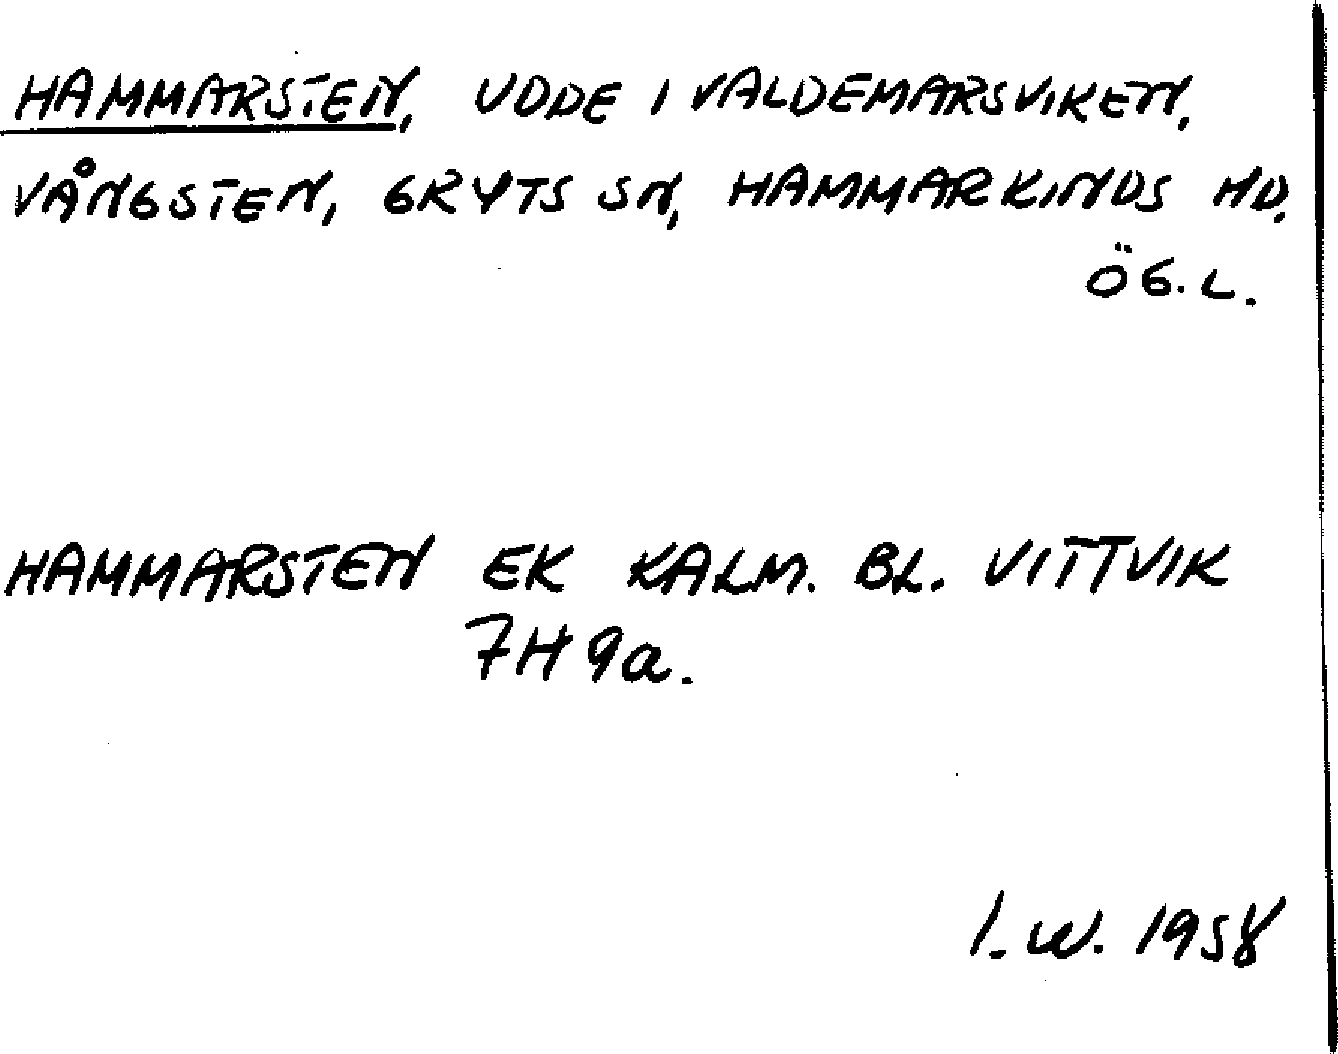 HAMMARSTEN, UDDE I VALDEMARSVIKEN,
VÅNGSTEN, GRYTS SN, HAMMARKINDS HD.
ÖG.L.
HAMMARSTEN EK KALM. BL. VITTVIK
7H 9a.
I.W. 1958